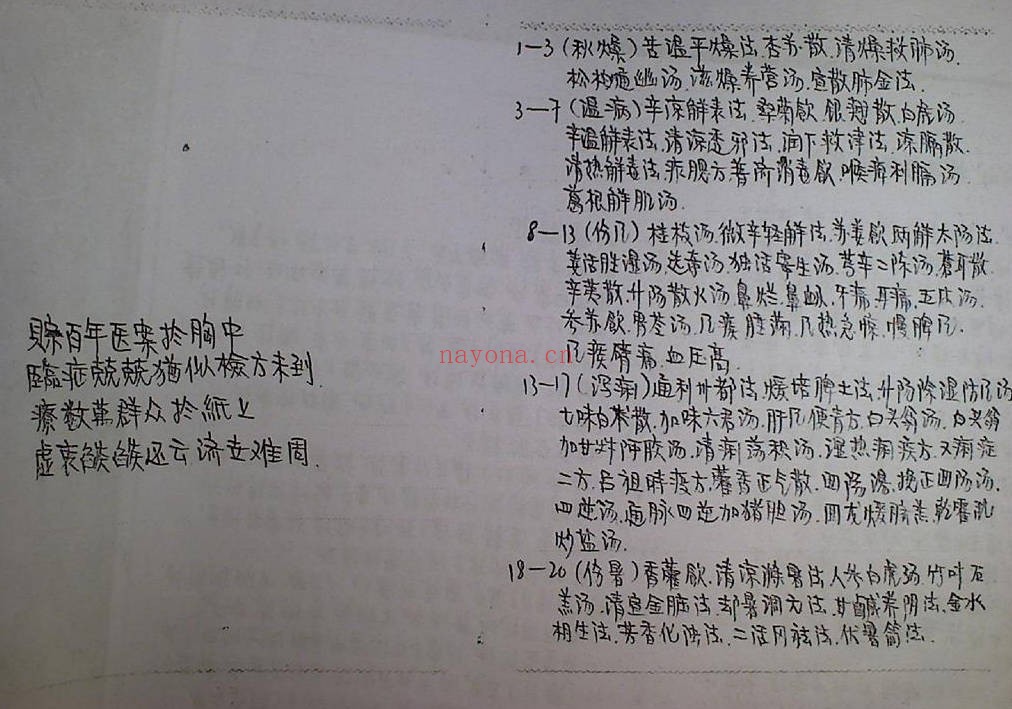 贮百年医案於胸中
臨症兢兢猶似檢方未到
療数萬群众於紙上
虚衷欿欿还云济世难周
nayona.cn
1—3(秋燥)苦温平燥法.杏苏散.清燥救肺汤.
松柏通幽汤.滋燥养营汤.宣散肺金法.
3—7(温病)辛凉解表法.桑菊飲.银翘散.白虎汤.
辛温解表法.清凉透邪法.润下救津法.凉膈散.
清热解毒法.痄腮方.普济消毒飲.喉痹利膈汤.
葛根解肌汤.
8—13(伤风)桂枝汤.微辛轻解法.苏姜飲.两解太阳法.
羌活胜湿汤.选奇汤.独活寄生汤.芎辛二陈汤.蒼耳散.
辛荑散.升阳散火汤.鼻烂.鼻衄.牙痛.牙痛.玉皮汤.
参苏飲.胃苓汤.风痰腫痛.风热急惊.慢脾风.
风痰臂痛.血压高.
13—17(泻痢)通利州都法.煖培脾土法.升阳除湿防风汤
七味白术散.加味六君汤.肝风便青方.白头翁汤.白头翁
加甘艸阿胶汤.清痢荡积汤.湿热痢疾方.又痢症
二方.吕祖時疫方.藿香正气散.回陽湯.挽正回阳汤.
四逆汤.通脉四逆加猪胆汤.回龙煖脐蒸.乾霍乱
炒盐汤.
18—20(伤暑)香薷飲.清凉滌暑法.人参白虎汤.竹叶石
羔汤.清宣金脏法.却暑调元法.甘鹹养阴法.金水
相生法.芳香化浊法.二活同祛法.伏暑翁法.